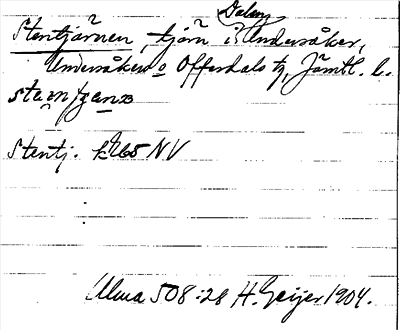 Dalen,
Stentjärnen, tjärn i Undersåker,
Undersåkers o Offerdals tg, Jämtl. l.
Stentj. k265 NV
Ulma 508:28 H. Geijer 1904.